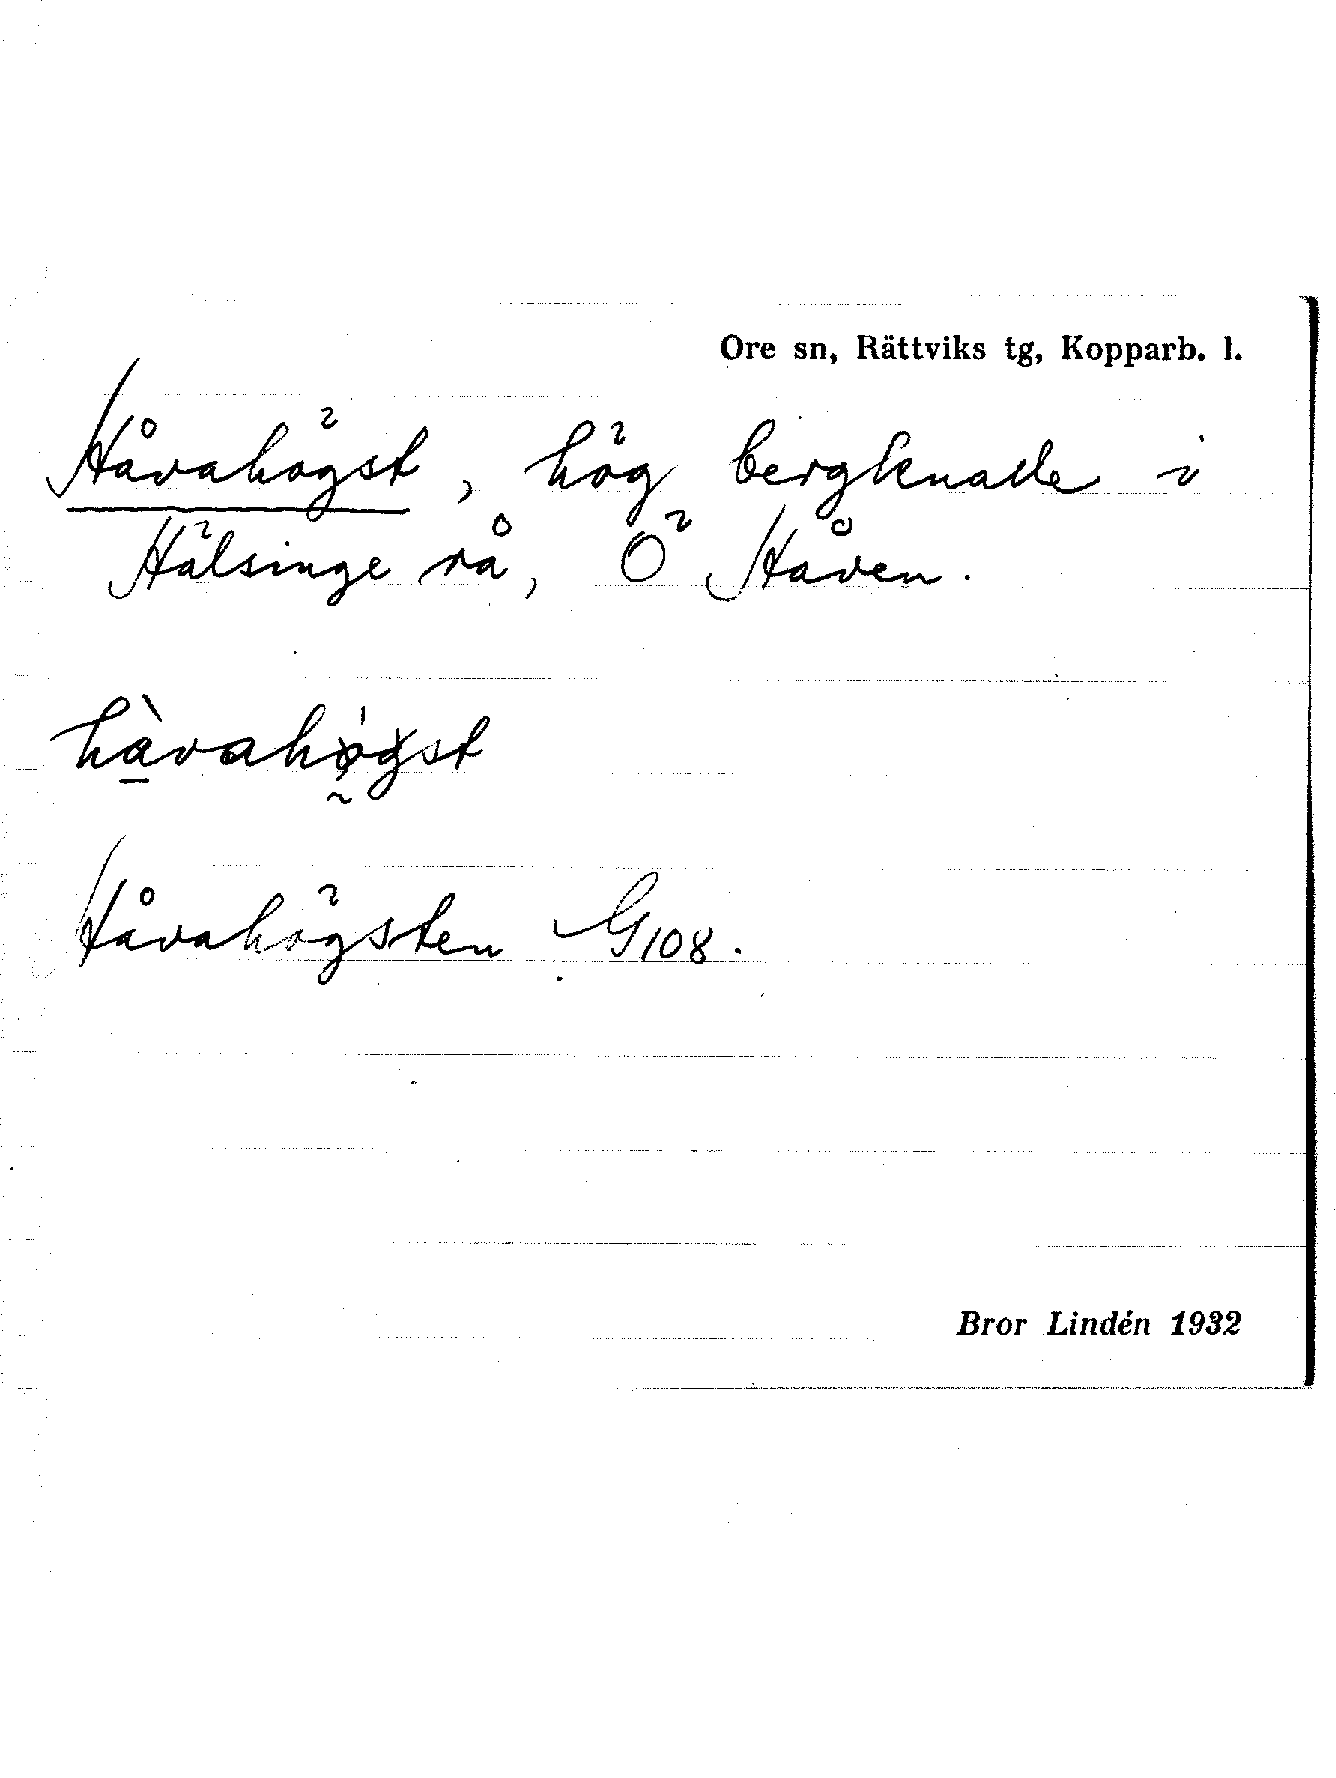 Ore sn, Rättviks tg, Kopparb. l.
Håvahögst, hög bergknalle i
Hälsinge rå, Ö Håven.
hàvahögst
Håvahögsten G108.
Bror Lindén 1932